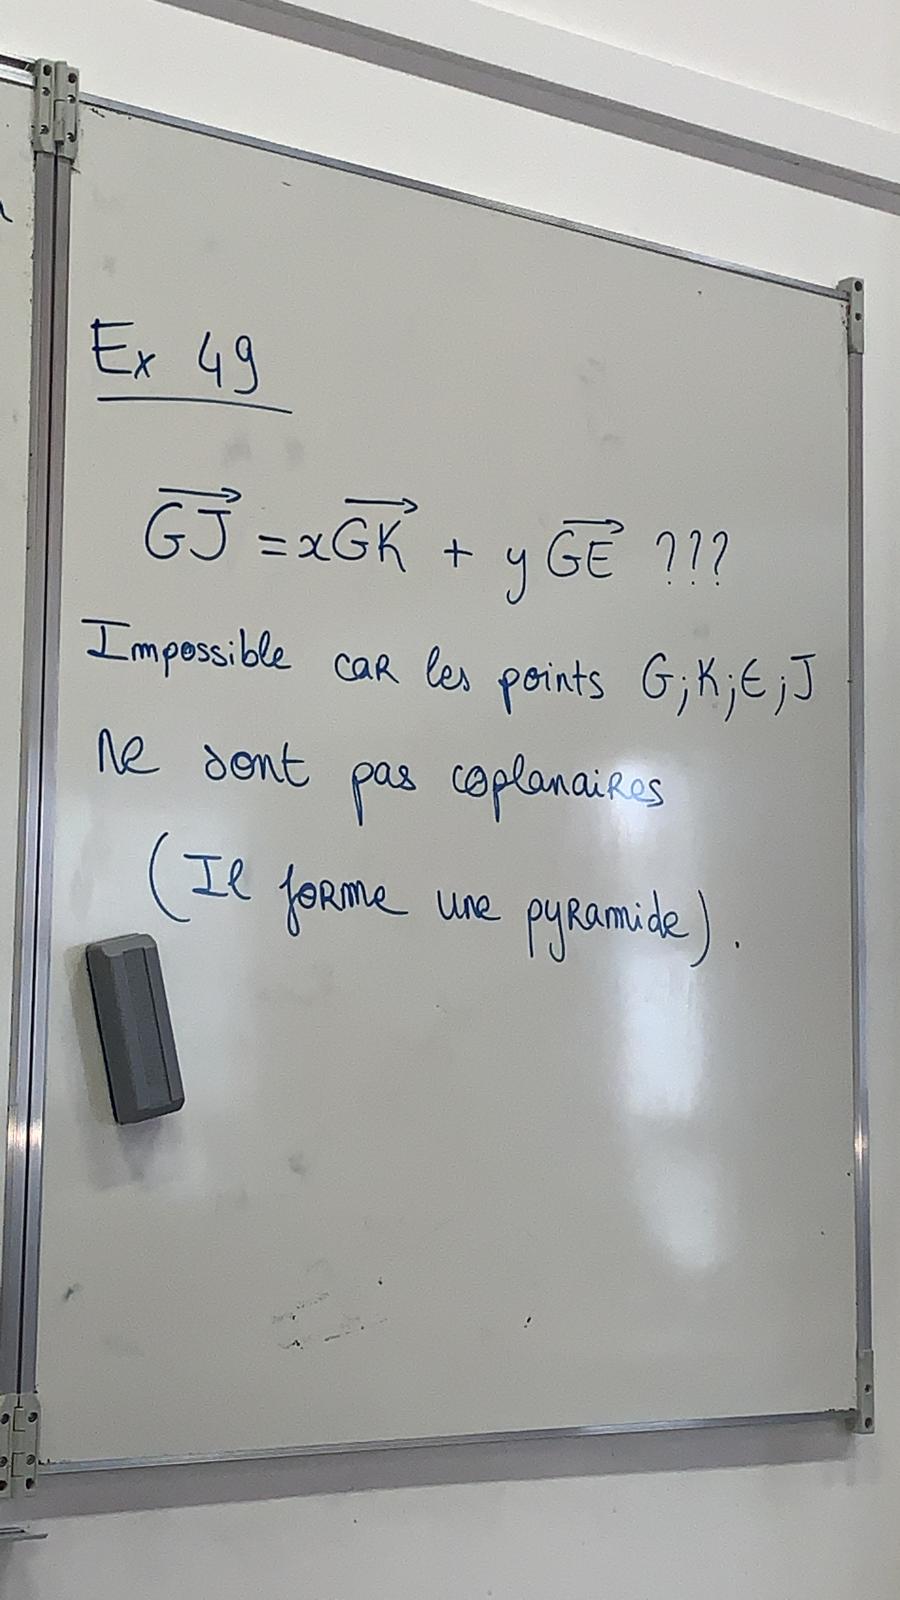 Ex 49
$\overrightarrow{GJ} = x\overrightarrow{GK} + y\overrightarrow{GE}$ ???
Impossible car les points G;K;E;J
ne sont pas coplanaires
(Il forme une pyramide).